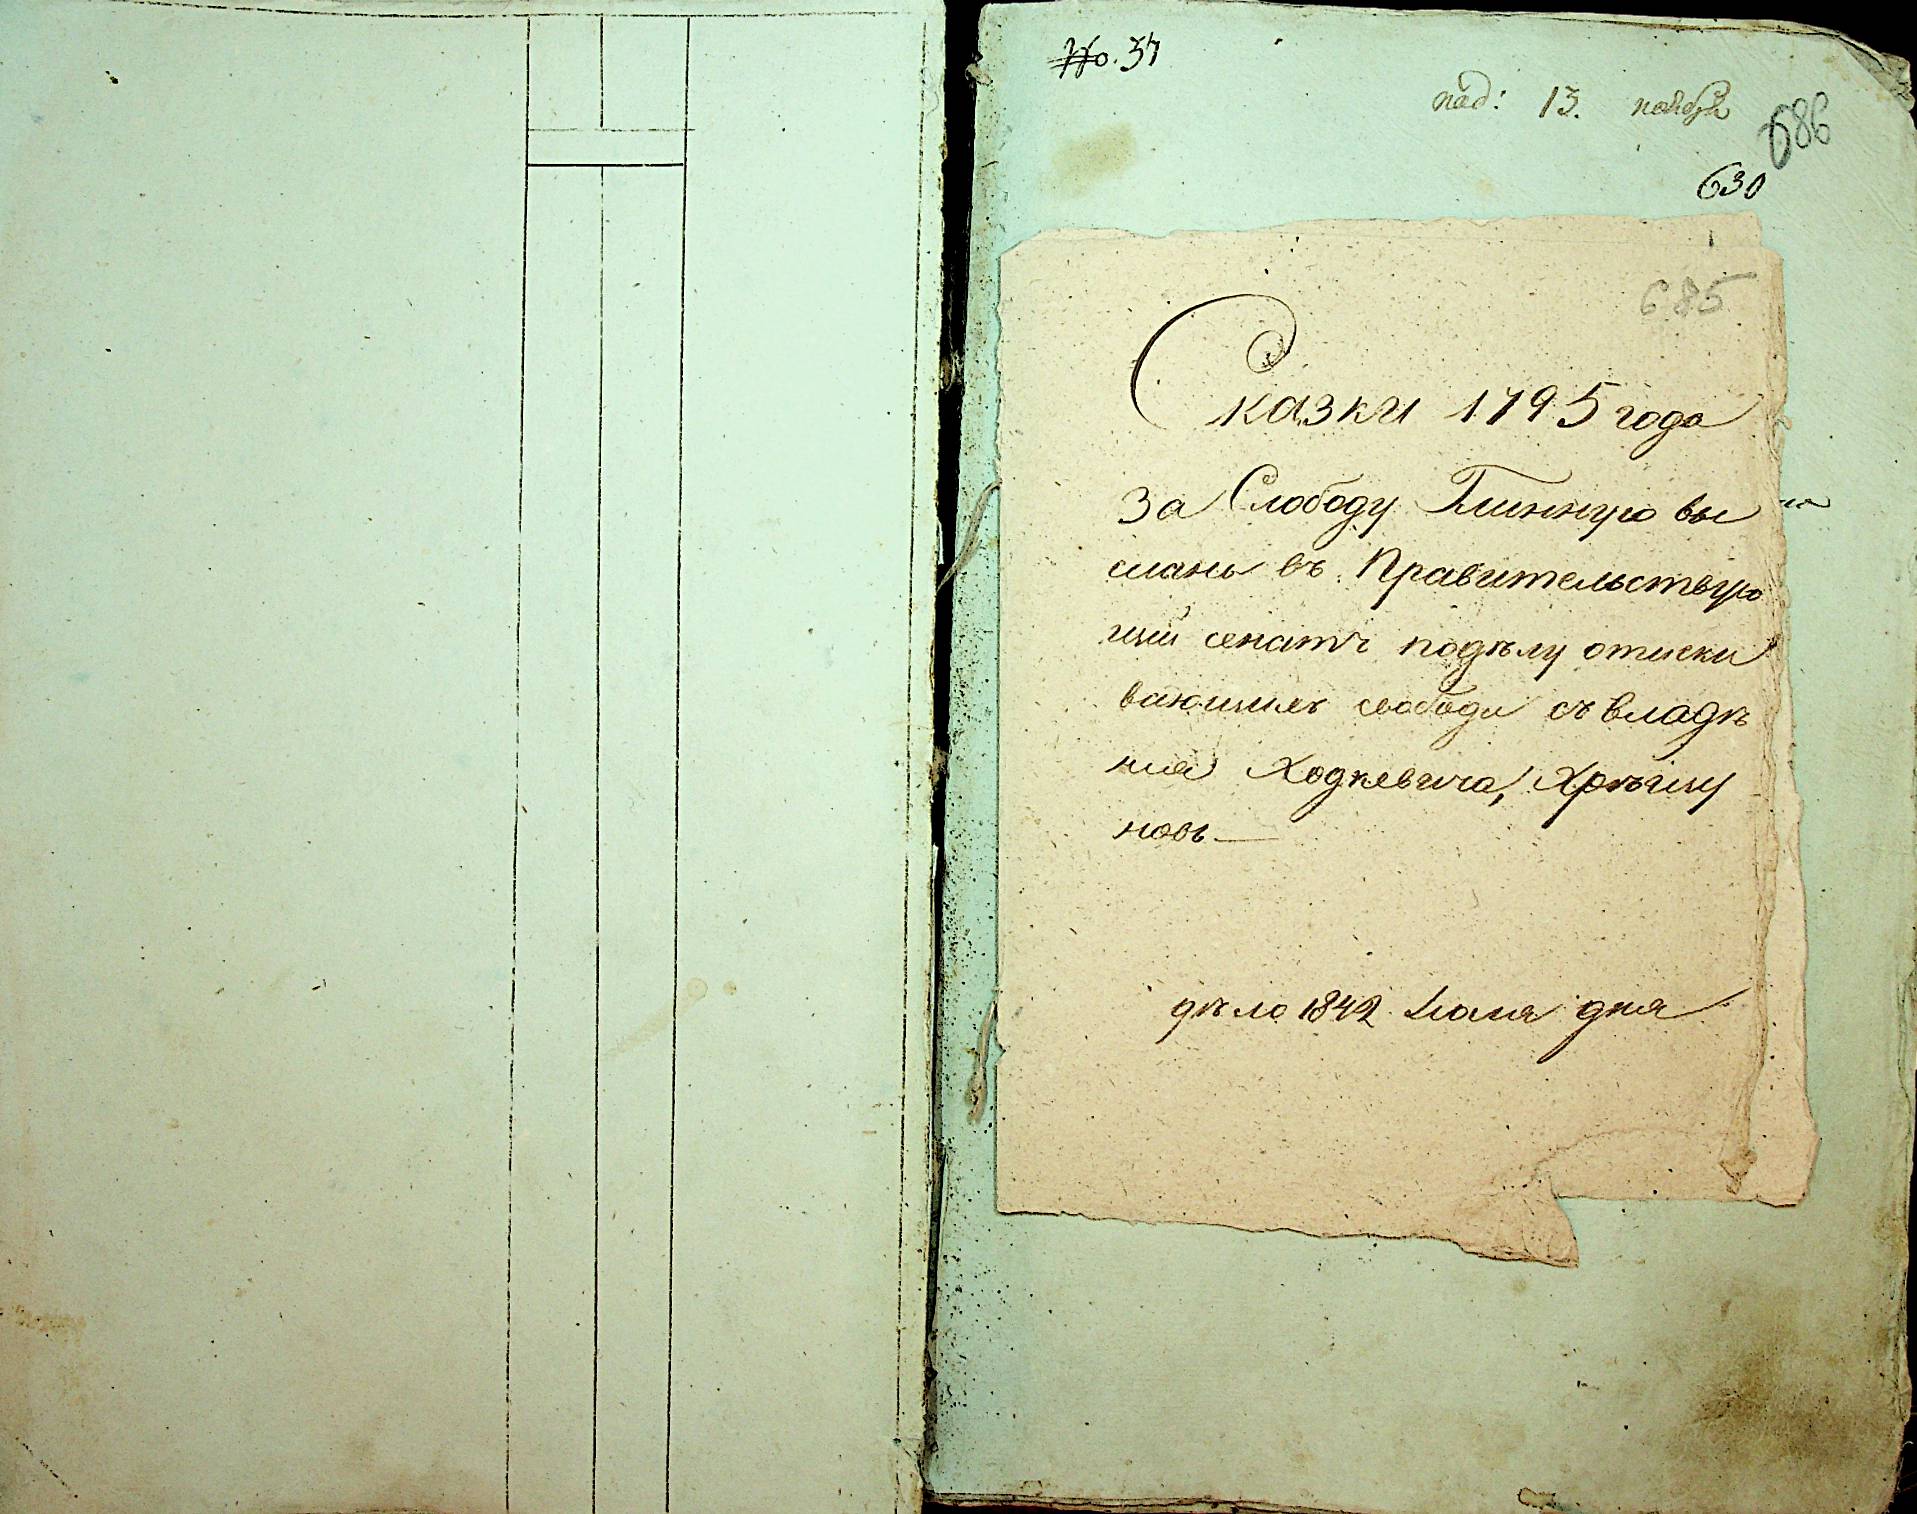 No. 37
пад: 13. ноября
686
630
685
Сказки 1795 года
За Слободу Глинную вы
сланы въ Правительствую
щий сенатъ подѣлу отиски
вающихъ свободи съ владѣ
ния Ходкевича,
новъ
дѣло 1842 Маия дня